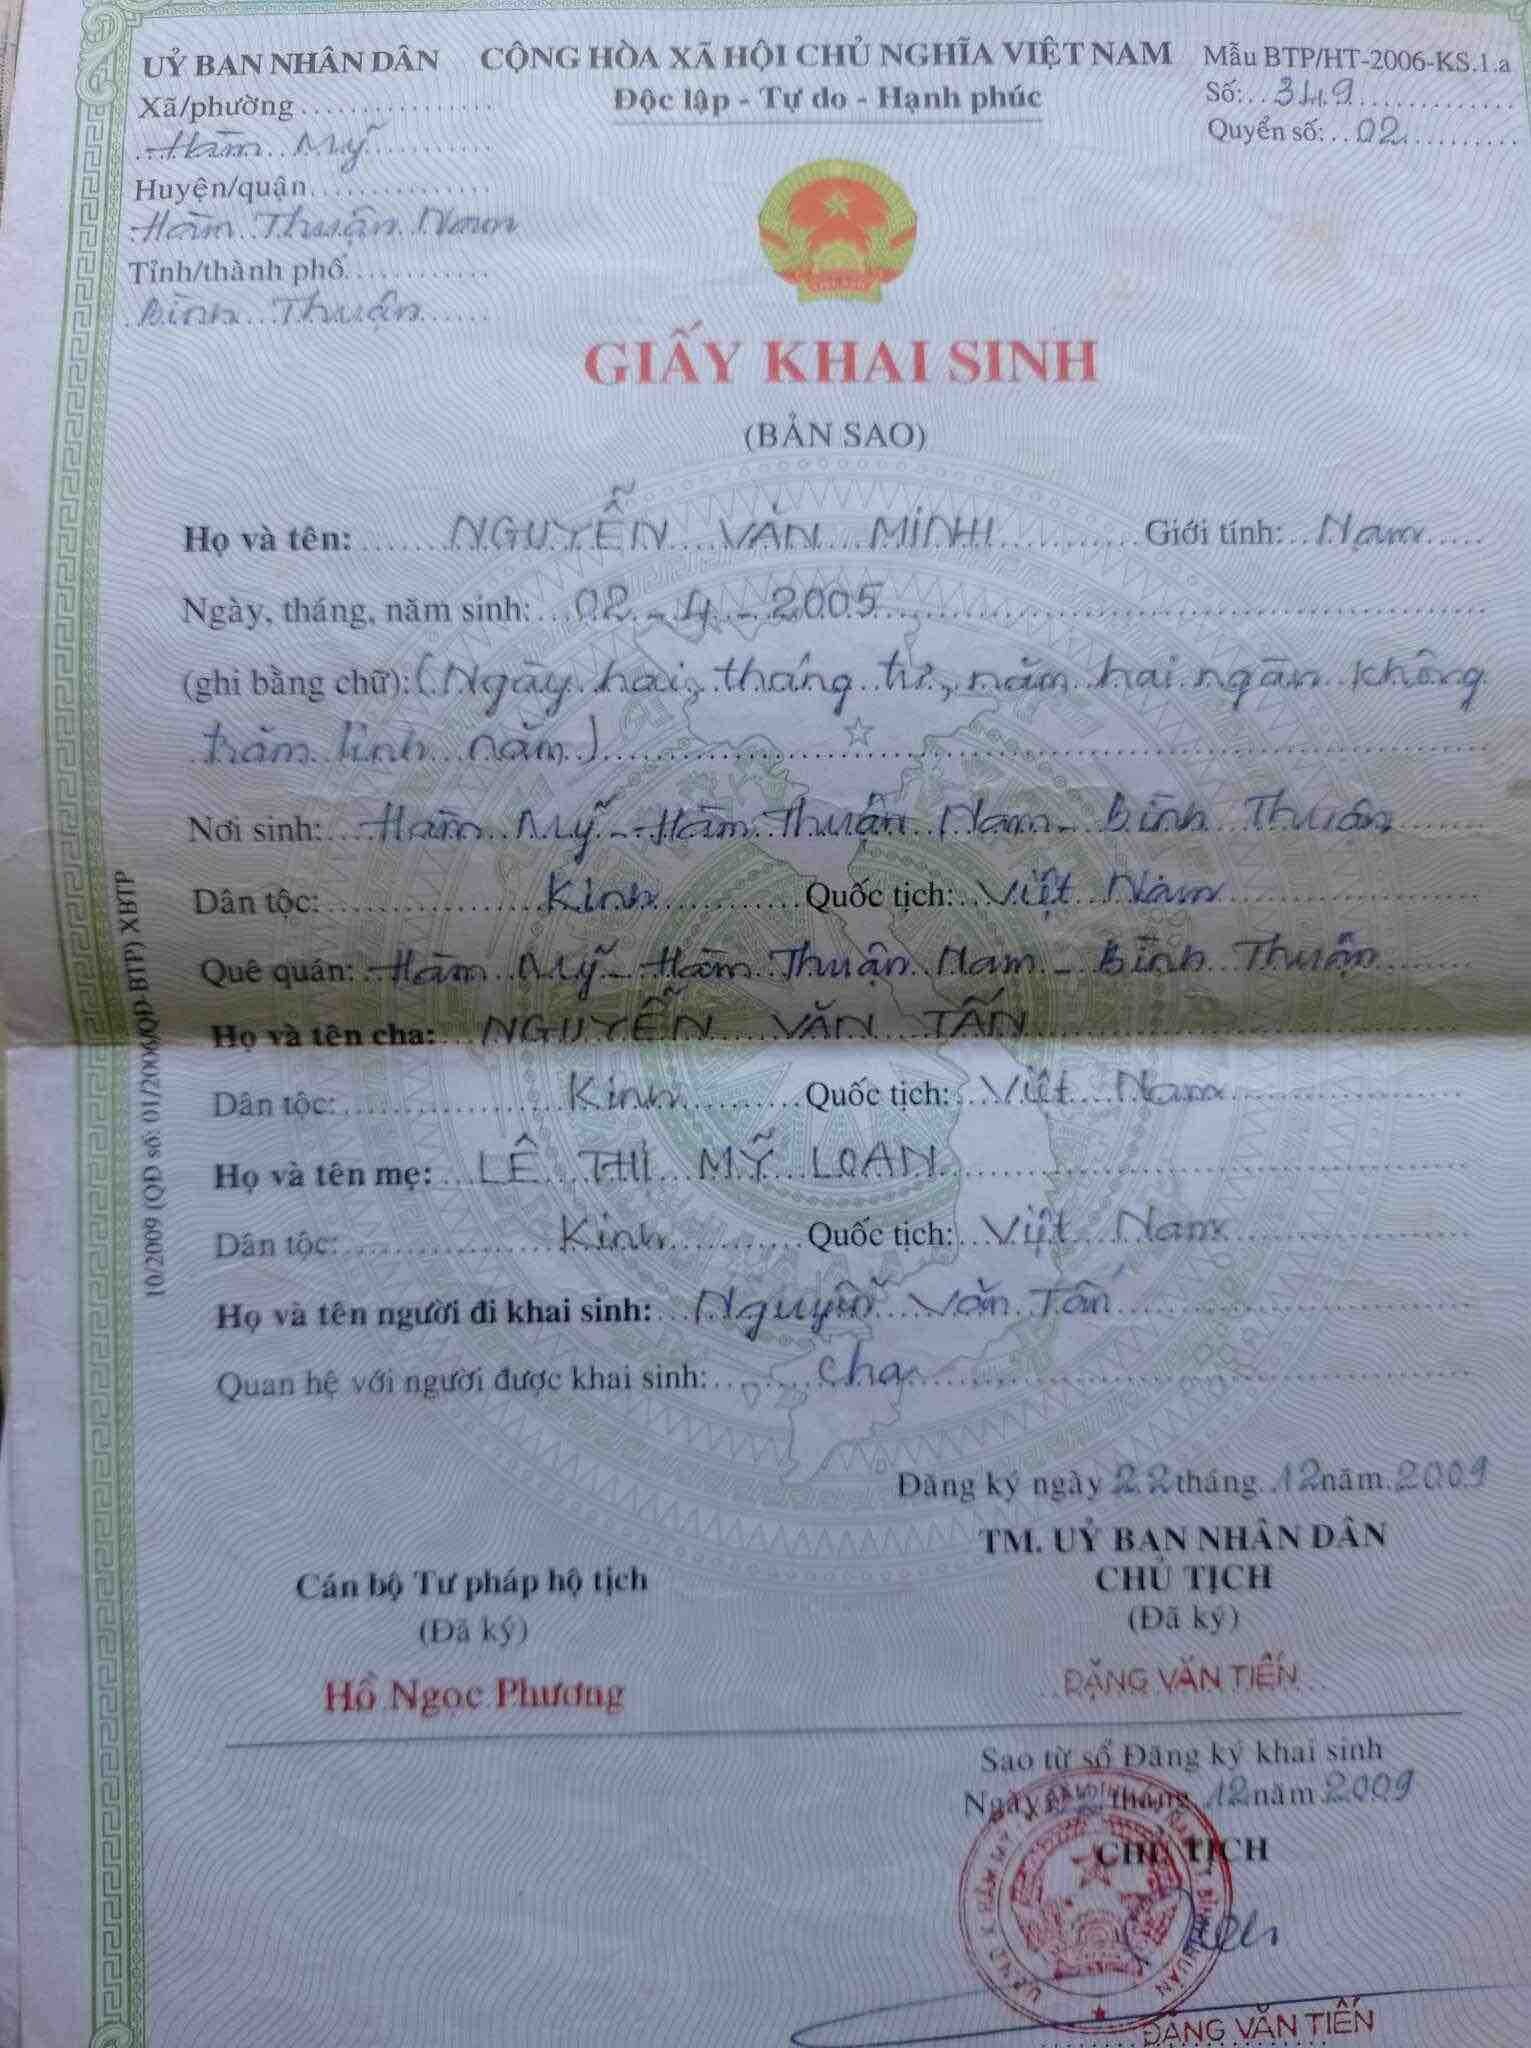 UỶ BAN NHÂN DÂN
Xã/phường
Hàm Mỹ
Huyện/quận
Hàm Thuận Nam
Tỉnh/thành phố
Bình Thuận
CỘNG HÒA XÃ HỘI CHỦ NGHĨA VIỆT NAM
Độc lập - Tự do - Hạnh phúc
Mẫu BTP/HT-2006-KS.1.a
Số: 349
Quyển số: 02
GIẤY KHAI SINH
(BẢN SAO)
Họ và tên: NGUYỄN VĂN MINH Giới tính: Nam
Ngày, tháng, năm sinh: 02 - 4 - 2005
(ghi bằng chữ): (Ngày hai, tháng tư, năm hai ngàn không
trăm linh năm)
Nơi sinh: Hàm Mỹ - Hàm Thuận Nam - Bình Thuận
Dân tộc: Kinh Quốc tịch: Việt Nam
Quê quán: Hàm Mỹ - Hàm Thuận Nam - Bình Thuận
Họ và tên cha: NGUYỄN VĂN TẤN
Dân tộc: Kinh Quốc tịch: Việt Nam
Họ và tên mẹ: LÊ THỊ MỸ LOAN
Dân tộc: Kinh Quốc tịch: Việt Nam
Họ và tên người đi khai sinh: Nguyễn Văn Tấn
Quan hệ với người được khai sinh: cha
10/2009 (QĐ số: 01/2006/QĐ-BTP) XBTP
Đăng ký ngày 22 tháng 12 năm 2009
TM. UỶ BAN NHÂN DÂN
CHỦ TỊCH
(Đã ký)
ĐẶNG VĂN TIẾN
Cán bộ Tư pháp hộ tịch
(Đã ký)
Hồ Ngọc Phương
Sao từ sổ Đăng ký khai sinh
Ngày tháng 12 năm 2009
CHỦ TỊCH
ĐẶNG VĂN TIẾN